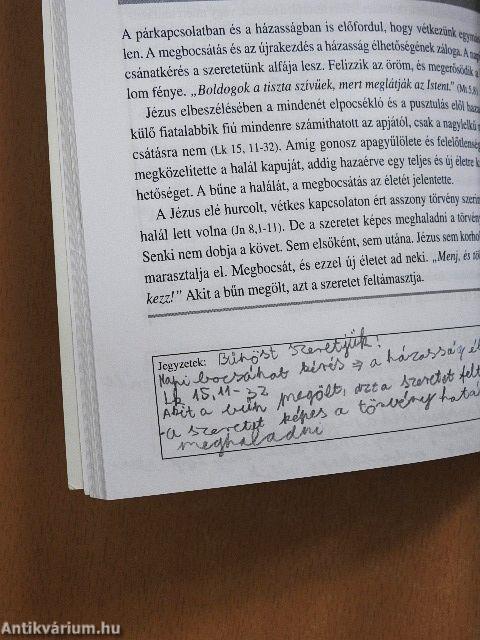 A párkapcsolatban és a házasságban is előfordul, hogy vétkezünk egymás
len. A megbocsátás és az újrakezdés a házasság élhetőségének záloga. A napi
csánatkérés a szeretetünk alfája lesz. Felizzik az öröm, és megerősödik a
lom fénye. „Boldogok a tiszta szívűek, mert meglátják az Istent." (Mt 5,8)
Jézus elbeszélésében a mindenét elpocsékló és a pusztulás elől haza
külő fiatalabbik fiú mindenre számíthatott az apjától, csak a nagylelkű
csátásra nem (Lk 15, 11-32). Amíg gonosz apagyűlölete és felelőtlens
megközelítette a halál kapuját, addig hazaérve egy teljes és új életre k
hetőséget. A bűne a halálát, a megbocsátás az életét jelentette.
A Jézus elé hurcolt, vétkes kapcsolaton ért asszony törvény szerin
halál lett volna (Jn 8,1-11). De a szeretet képes meghaladni a törvén
Senki nem dobja a követ. Sem elsőként, sem utána. Jézus sem korhol
marasztalja el. Megbocsát, és ezzel új életet ad neki. „Menj, és tö
kezz!" Akit a bűn megölt, azt a szeretet feltámasztja.
Jegyzetek: Bűnöst szeretjük!
Napi bocsánat kérés ⇒ a házasság él
Lk 15,11-32
Akit a bűn megölt, azt a szeretet felt
- a szeretet képes a törvény hatá
meghaladni
Antikvárium.hu